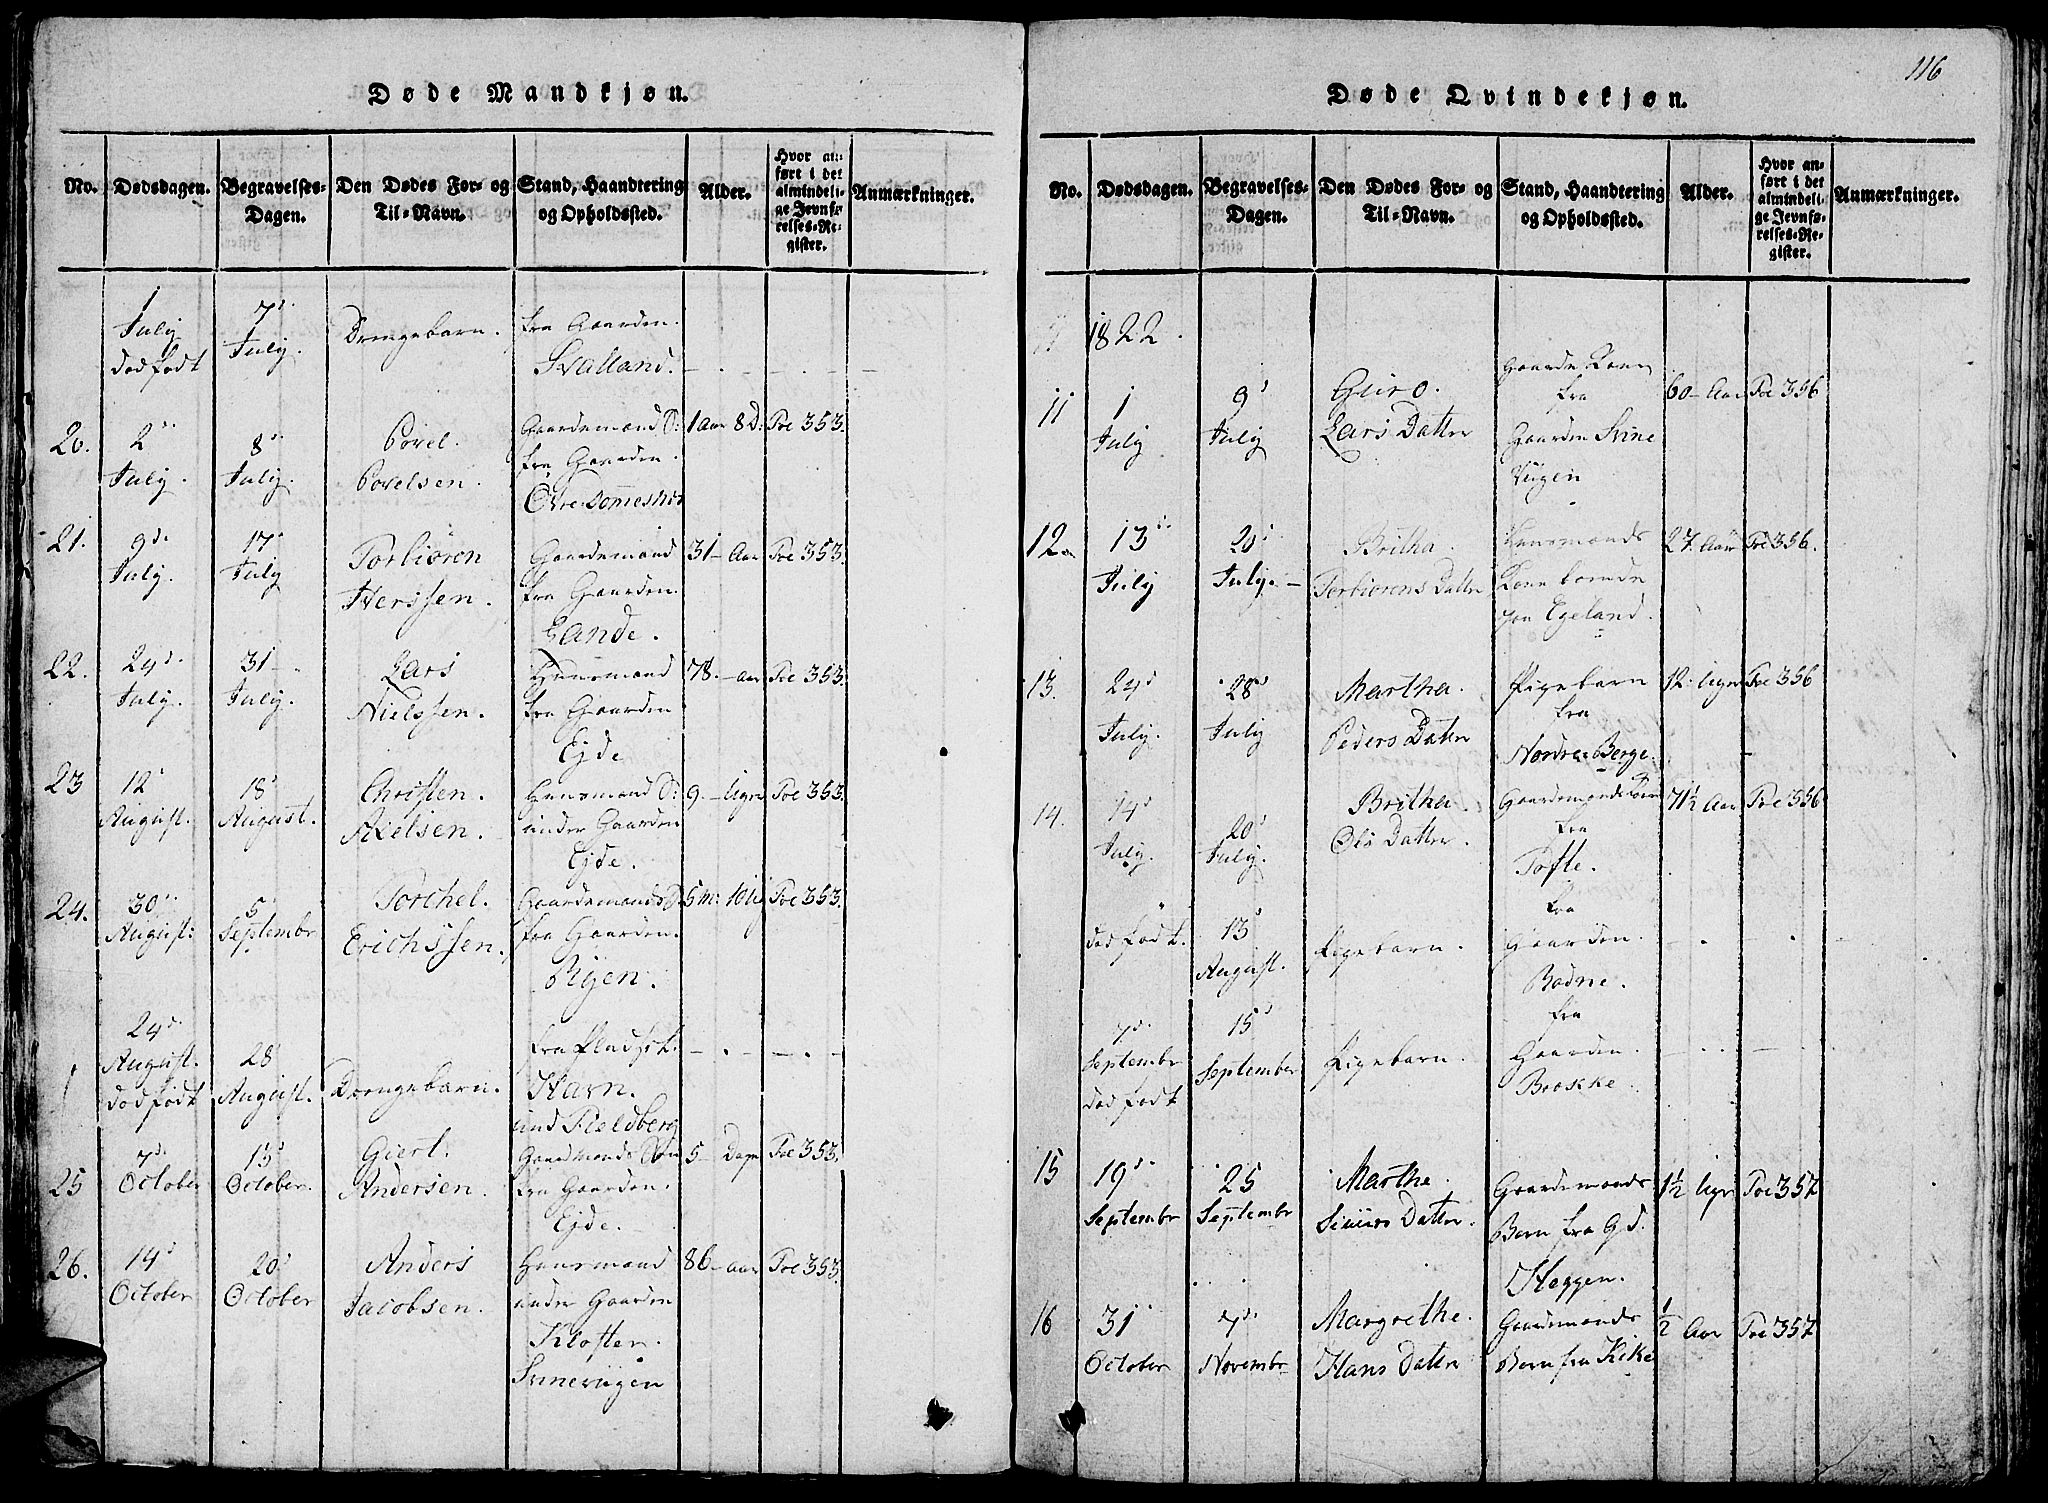 116
Døde Mandkjøn.
No.
Dødsdagen.
Begravelses-
Dagen.
Den Dødes For- og
Til-Navn.
Stand, Haandtering
og Opholdssted.
Alder.
Hvor an-
ført i det
almindeli-
ge Jevnfø-
relses-Re-
gister.
Anmærkninger.
1
July
dødfødt
7d.
July.
Drengebarn.
fra Gaarden.
Svalland.
20.
2d.
July.
8d.
July.
Povel.
Povelsen.
Gaardemand S:
fra Gaarden.
1 aar 8 D:
Fol 353.
21.
9d.
July.
17d
July
Torbiören
Herssen.
Gaardemand
fra Gaarden.
Lande.
31- Aar
Fol 353.
22.
29d.
July.
31-
July.
Lars
Nielssen.
Huusmand
fra Gaarden
Ejde
78. - aar
Fol 353.
23
12d
August.
18d
August.
Christen.
Axelsen.
Huusmand S:
under Gaarden
Ejde.
9. - Uger
Fol 353.
24.
30d.
August:
5d
Septembr
Torchel.
Erichssen.
Gaardemands S
fra Gaarden.
Ryen.
5 m: 10 U
Fol 353.
24d.
August.
dødfødt
28d
August.
Drengebarn.
fra Pladsen
Havn.
und Fieldberg
25
7d.
October
13d
October.
Giert.
Andersen.
Gaardmands Søn
fra Gaarden.
Ejde.
5 - Dage
Fol 353.
26.
14d
October
20d
October
Anders
Jacobsen.
Huusmand
under Gaarden
Kloster.
Svinevügen
86 - aar
Fol 353.
Døde Qvindekjøn.
No.
Dødsdagen.
Begravelses-
Dagen.
Den Dødes For- og
Til-Navn.
Stand, Haandtering
og Opholdssted.
Alder.
Hvor an-
ført i det
almindeli-
ge Jevnfø-
relses-Re-
gister.
Anmærkninger.
1822.
11
1
July
9d
July
Guro.
Lars Datter
Gaarde Kone
fra
Gaarden Svine
Vügen
60 - Aar
Fol 356
12.
13d.
July
20d
July. -
Britha.
Torbiörens Datter
Huusmands
Kone
Egeland.
27. Aar
Fol 356.
13.
24d
July.
28d
July
Martha.
Peders Datter
Pigebarn
fra
Nordre Berge.
12. Uger
Fol 356
14.
14d
July.
20d
July.
Britha.
Ols Datter.
Gaardemands Kone
fra
Tofte.
71½ Aar
Fol 356
dødfødt.
13d
August.
Pigebarn.
fra
Gaarden.
Bødne.
7d.
Septembr
dødfødt
15d
September
Pigebarn.
fra
Gaarden.
Brokke.
15
19d.
Septembr
25
Septembr
Marthe.
Siuurs Datter.
Gaardemands
Barn fra Gd.
Heggen.
1½ Uger
Fol 357
16
31
October
7d.
Novembr
Margrethe.
Hans Datter
Gaardemands
Barn fra Kike
½ Aar
Fol 357